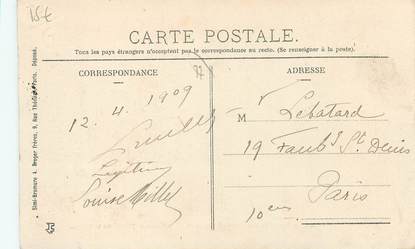 15€
CARTE POSTALE.
Tous les pays étrangers n'acceptent pas le correspondance au recto. (Se renseigner à la poste).
CORRESPONDANCE
ADRESSE
12. 4. 1909
Louise Millet
M r Lebatard
19 Faub g St Denis
Paris
10 em
Simi-Bromure A. Breger Frères, 9, Rue Thénard, Paris. Déposé.